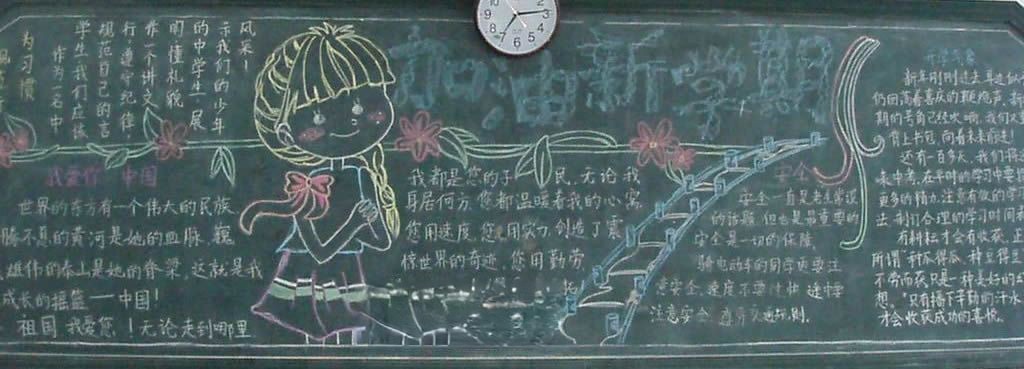 加油新学期
风采！
示我们的少年
的中学生，展
明懂礼貌
作一个讲文
行遵守纪律
规范自己的言
学生我们应该
作为一名中
为习惯
我爱你 中国
世界的东方有一个伟大的民族
腾不息的黄河是她的血脉，巍
雄伟的泰山是她的脊梁，这就是我
成长的摇篮——中国！
祖国 我爱您！无论走到哪里
我都是您的子民，无论我
身居何方，您都温暖着我的心窝
您用速度，您用实力，创造了震
惊世界的奇迹，您用勤劳
安全
安全一直是老生常谈
的话题，但也是最重要的
安全是一切的保障。
骑电动车的同学更要注
意安全，速度不要过快，途中要
注意安全，遵守交通规则。
新年刚刚过去，耳边似乎
仍回荡着喜庆的鞭炮声，新
期的号角已经吹响，我们又要
背上书包，向着未来前进！
还有一百多天，我们将迎
来中考，在平时的学习中要
更多的精力，注意有效的学习
法，制订合理的学习时间
有耕耘才会有收获，正
所谓“种瓜得瓜，种豆得豆
不劳而获只是一种美好的幻
想，“只有播下辛勤的汗水
才会收获成功的喜悦。